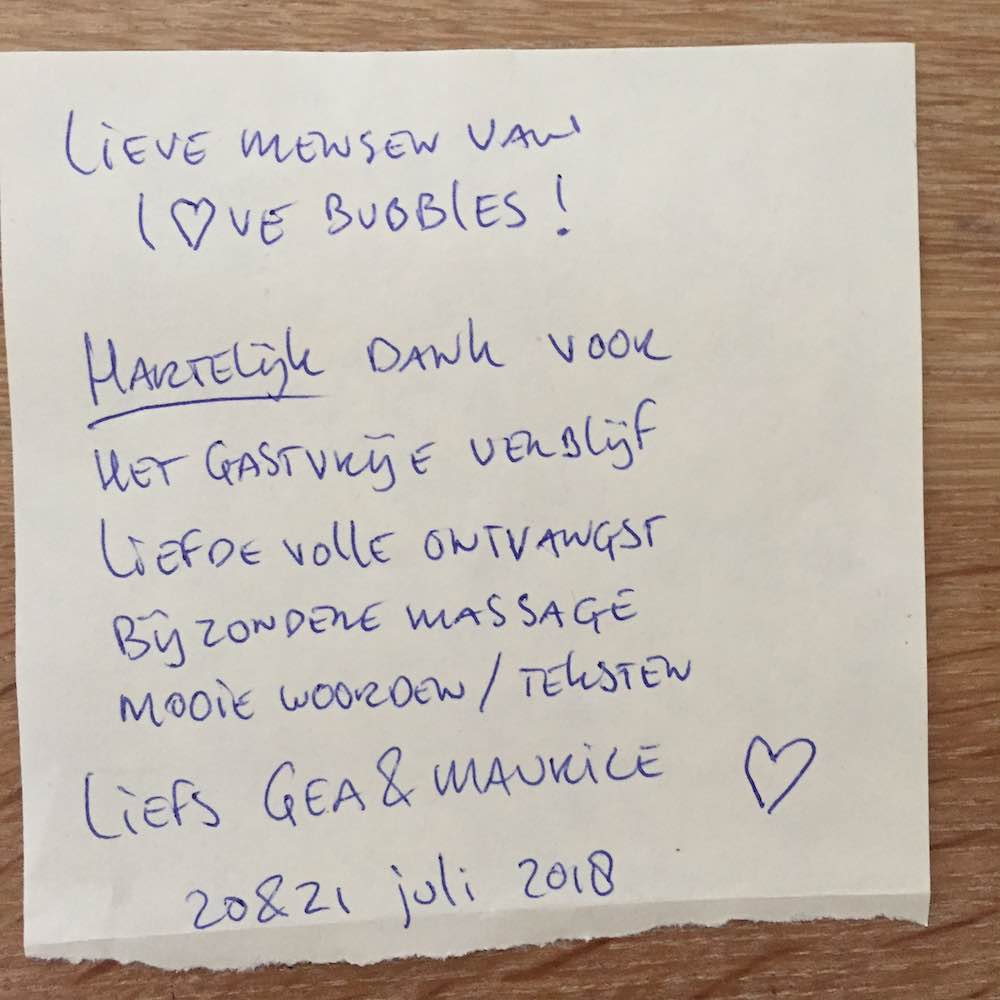 LIEVE MENSEN VAN
L♡VE BUBBLES!
HARTELIJK DANK VOOR
HET GASTVRIJE VERBLIJF
LIEFDEVOLLE ONTVANGST
BIJZONDERE MASSAGE
MOOIE WOORDEN / TEKSTEN
LIEFS GEA & MAURICE ♡
20 & 21 juli 2018